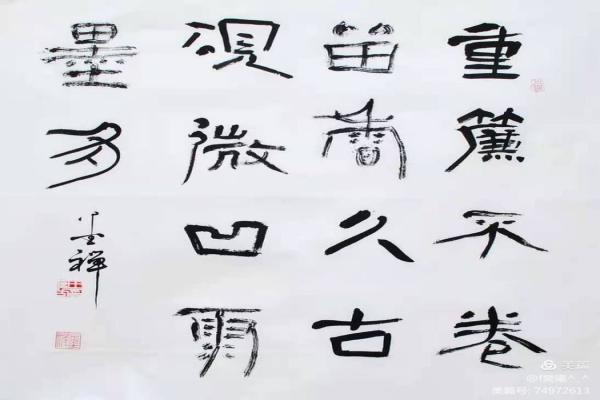 重簾不卷
留香久古
硯微凹聚
墨多
美篇
美篇号: 74972613